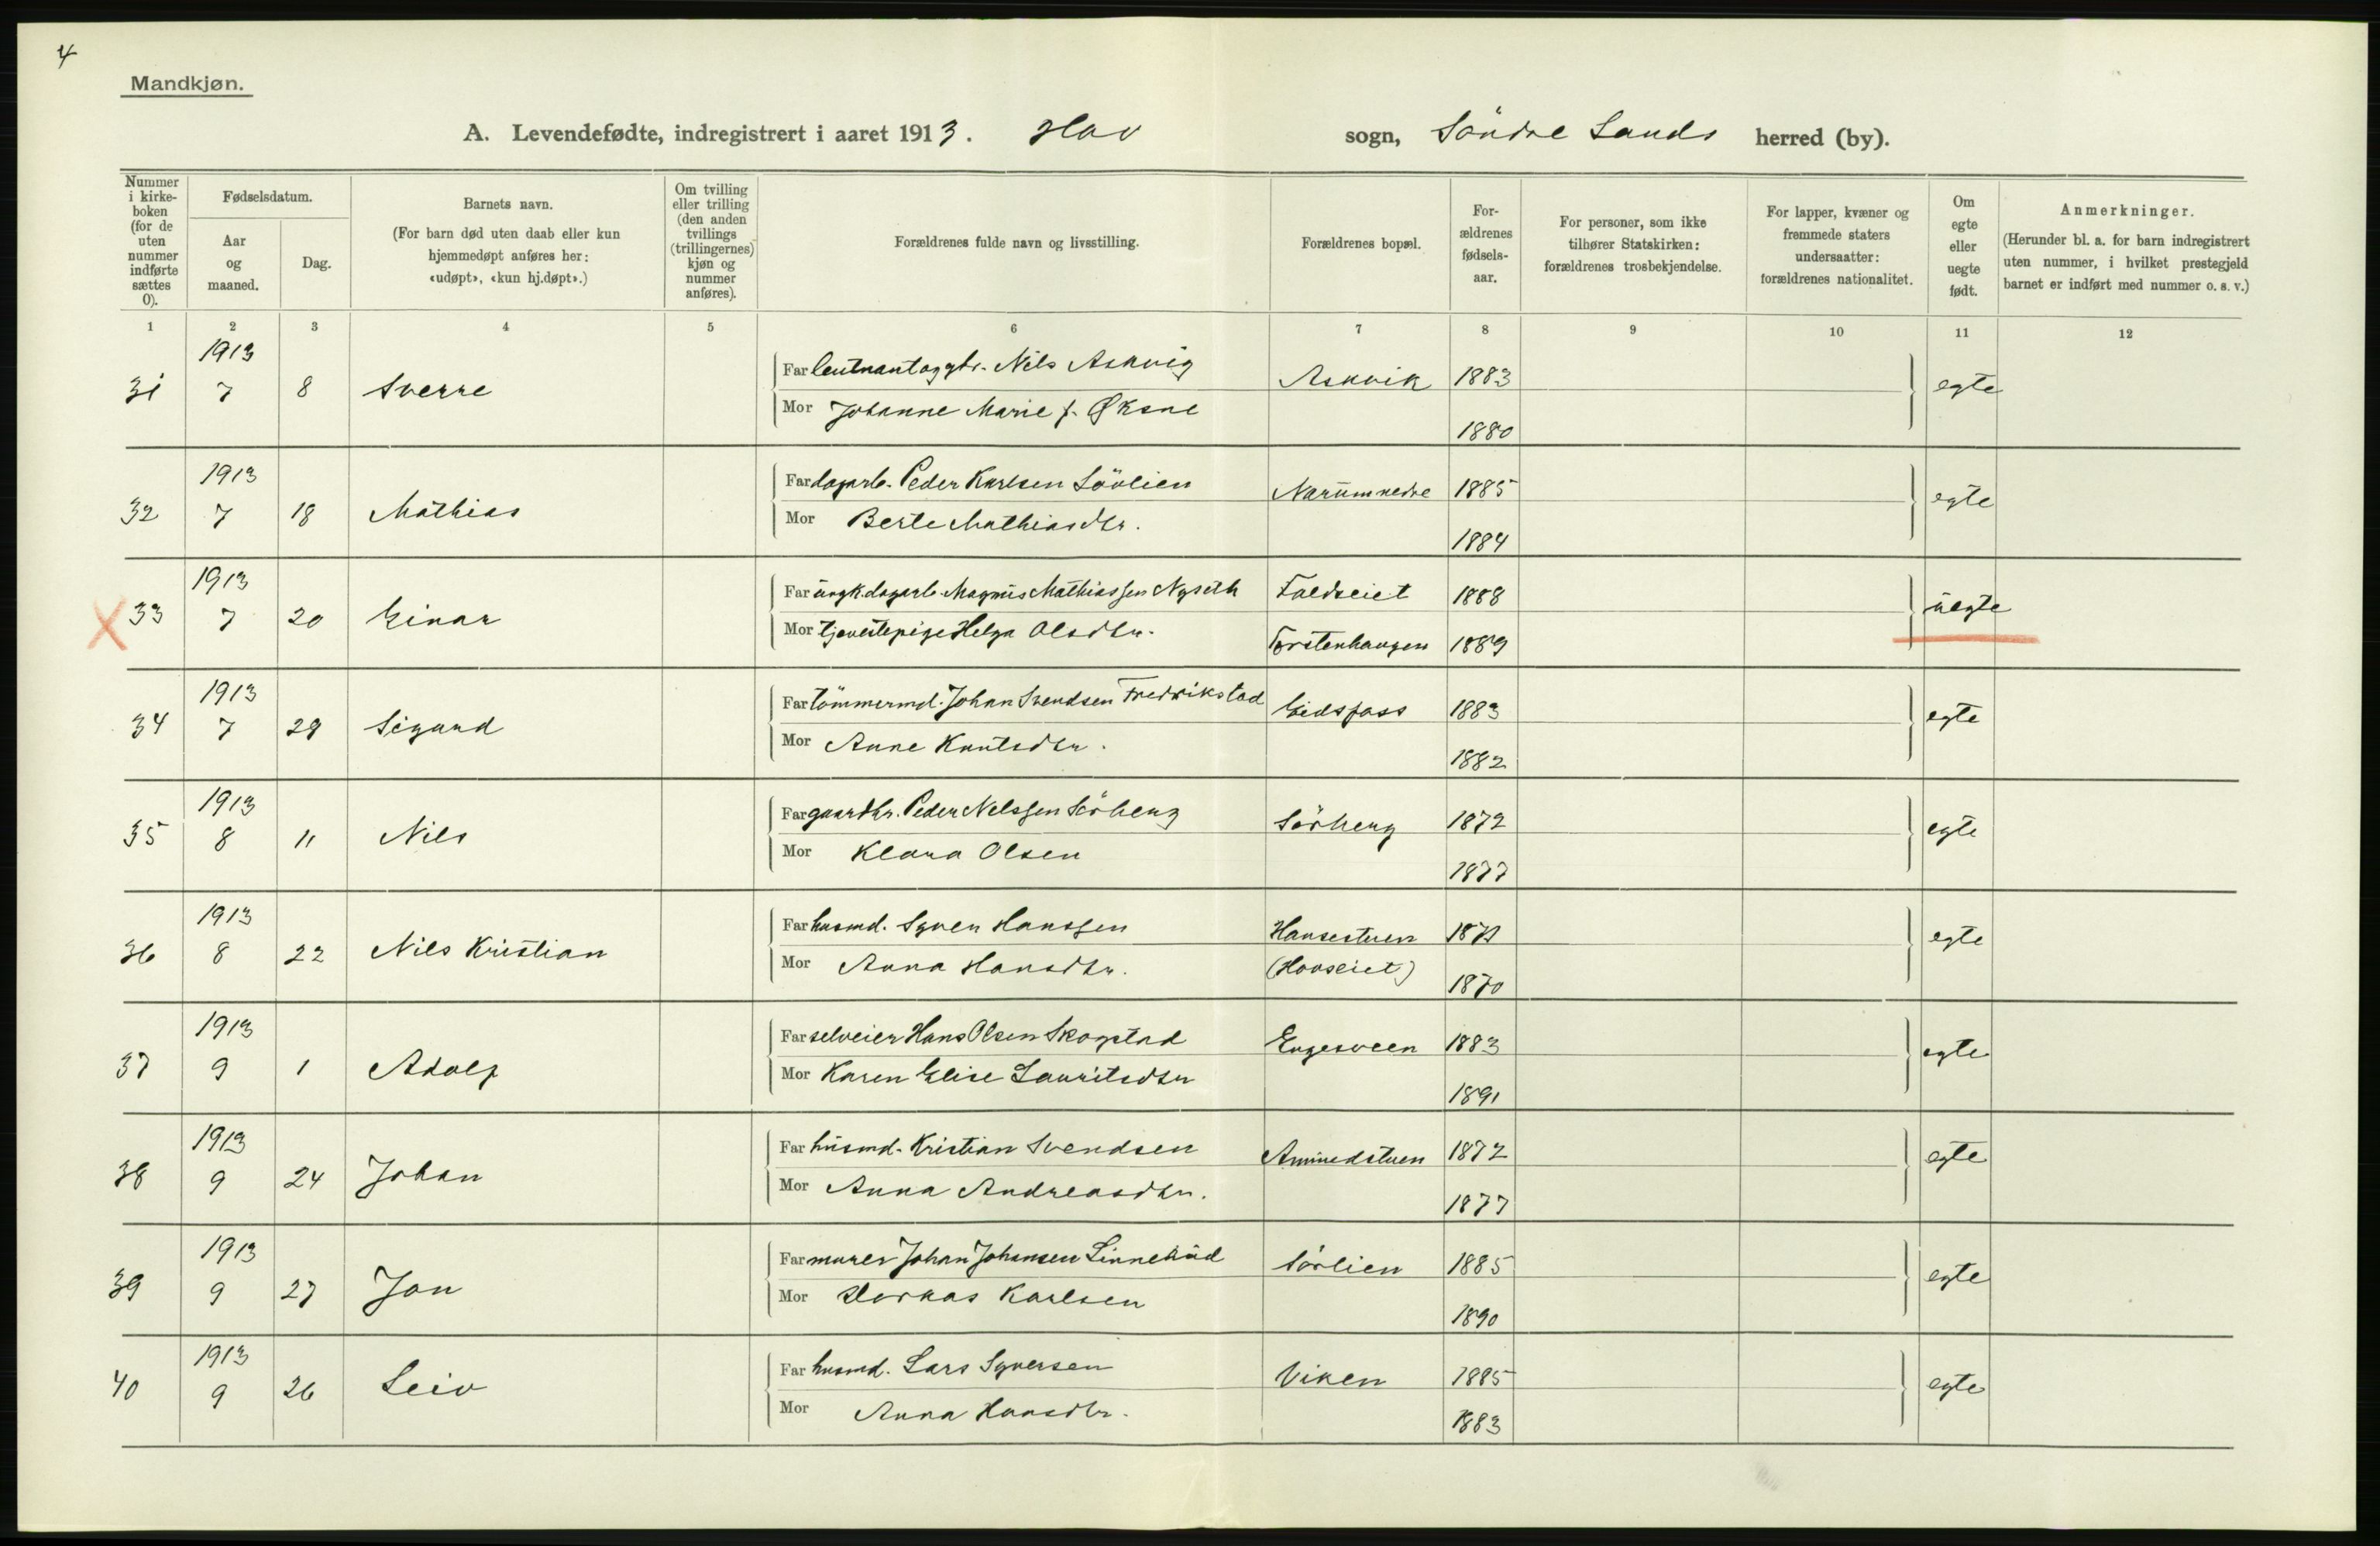 4
Mandkjøn.
A. Levendefødte, indregistrert i aaret 1913. Hov sogn, Söndre Lands herred (by).
Nummer i kirke-boken (for de uten nummer indførte sættes 0).
Fødselsdatum.
Aar og maaned.
Dag.
Barnets navn.
(For barn død uten daab eller kun hjemmedøpt anføres her: «udøpt», «kun hj.døpt».)
Om tvilling eller trilling (den anden tvillings (trillingernes) kjøn og nummer anføres).
Forældrenes fulde navn og livsstilling.
Forældrenes bopæl.
For-ældrenes fødsels-aar.
For personer, som ikke tilhører Statskirken: forældrenes trosbekjendelse.
For lapper, kvæner og fremmede staters undersaatter: forældrenes nationalitet.
Om egte eller uegte født.
Anmerkninger.
(Herunder bl. a. for barn indregistrert uten nummer, i hvilket prestegjeld barnet er indført med nummer o. s. v.)
1 2 3 4 5 6 7 8 9 10 11 12
1913
31 7 8 Sverre Far leutnant og gbr. Nils Askvig Askvik 1883 egte
Mor Johanne Marie f. Øksne 1880
1913
32 7 18 Mathias Far dagarb. Peder Karlsen Sövlien Narum nedre 1885 egte
Mor Berte Mathiasdtr. 1884
1913
X 33 7 20 Einar Far ungk. dagarb. Magnus Mathiassen Nyseth Faldseiet 1888 uegte
Mor tjenestepige Helga Olsdtr. Torstenhaugen 1889
1913
34 7 28 Sigurd Far tömmermd. Johan Svendsen Fredrikstad Eidsfoss 1883 egte
Mor Anne Knutsdtr. 1882
1913
35 8 11 Nils Far gaardbr. Peder Nelssen Sörheng Sörheng 1872 egte
Mor Klara Olsen 1877
1913
36 8 22 Nils Kristian Far husmd. Syven Hanssen Hansestuen 1871 egte
Mor Anna Hansdtr. (Hovseiet) 1870
1913
37 9 1 Adolf Far selveier Hans Olsen Skogstad Engesveen 1883 egte
Mor Karen Elise Lauritsdtr 1891
1913
38 9 24 Johan Far husmd. Kristian Svendsen 1872 egte
Mor Anna Andreasdtr. 1877
1913
39 9 27 Jon Far murer Johan Johansen Linnerud Sörlien 1885 egte
Mor Dorkas Karlsen 1890
1913
40 9 26 Leiv Far husmd. Lars Syversen Viken 1885 egte
Mor Anna Hansdtr. 1883